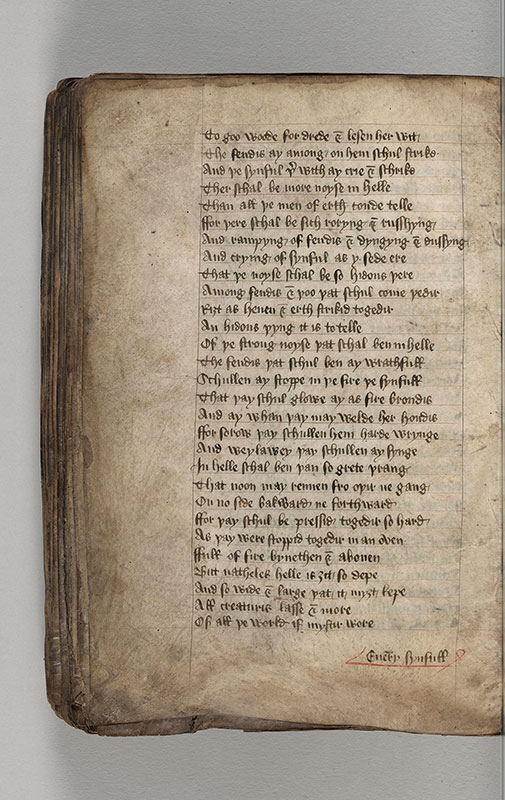 To goo woode for drede & lesen her wit
The fendis ay among on hem schul strike
And þe synful þer with ay crie & schrike
Ther schal be more noyse in helle
Than all þe men of erth coude telle
ffor þere schal be sich roryng & russhyng
And rampyng of fendis & dyngyng & dusshyng
And crying of synful as y sede ere
That þe noyse schal be so hidous þere
Among fendis & þoo þat schul come þedir
Riȝt as heuen & erth strikid togedir
An hidous þyng it is to telle
Of þe strong noyse þat schal ben in helle
The fendis þat schul ben ay wrathfull
Schullen ay stoppe in þe fire þe synfull
That þay schul glowe ay as fire brondis
And ay whan þay may welde her hondis
ffor sorow þay schullen hem harde wrynge
And weylawey þay schullen ay synge
In helle schal ben þan so grete þrang
That noon may rennen fro oþir ne gang
On no side bakward ne forthward
ffor þay schul be pressid togedir so hard
As þay were stoppid togedir in an oven
ffull of fire bynethen & aboven
But natheles helle is ȝit so depe
And so wide & large þat it myȝt kepe
All creaturis lasse & more
Of all þe world if mystir wore
Euery synfull